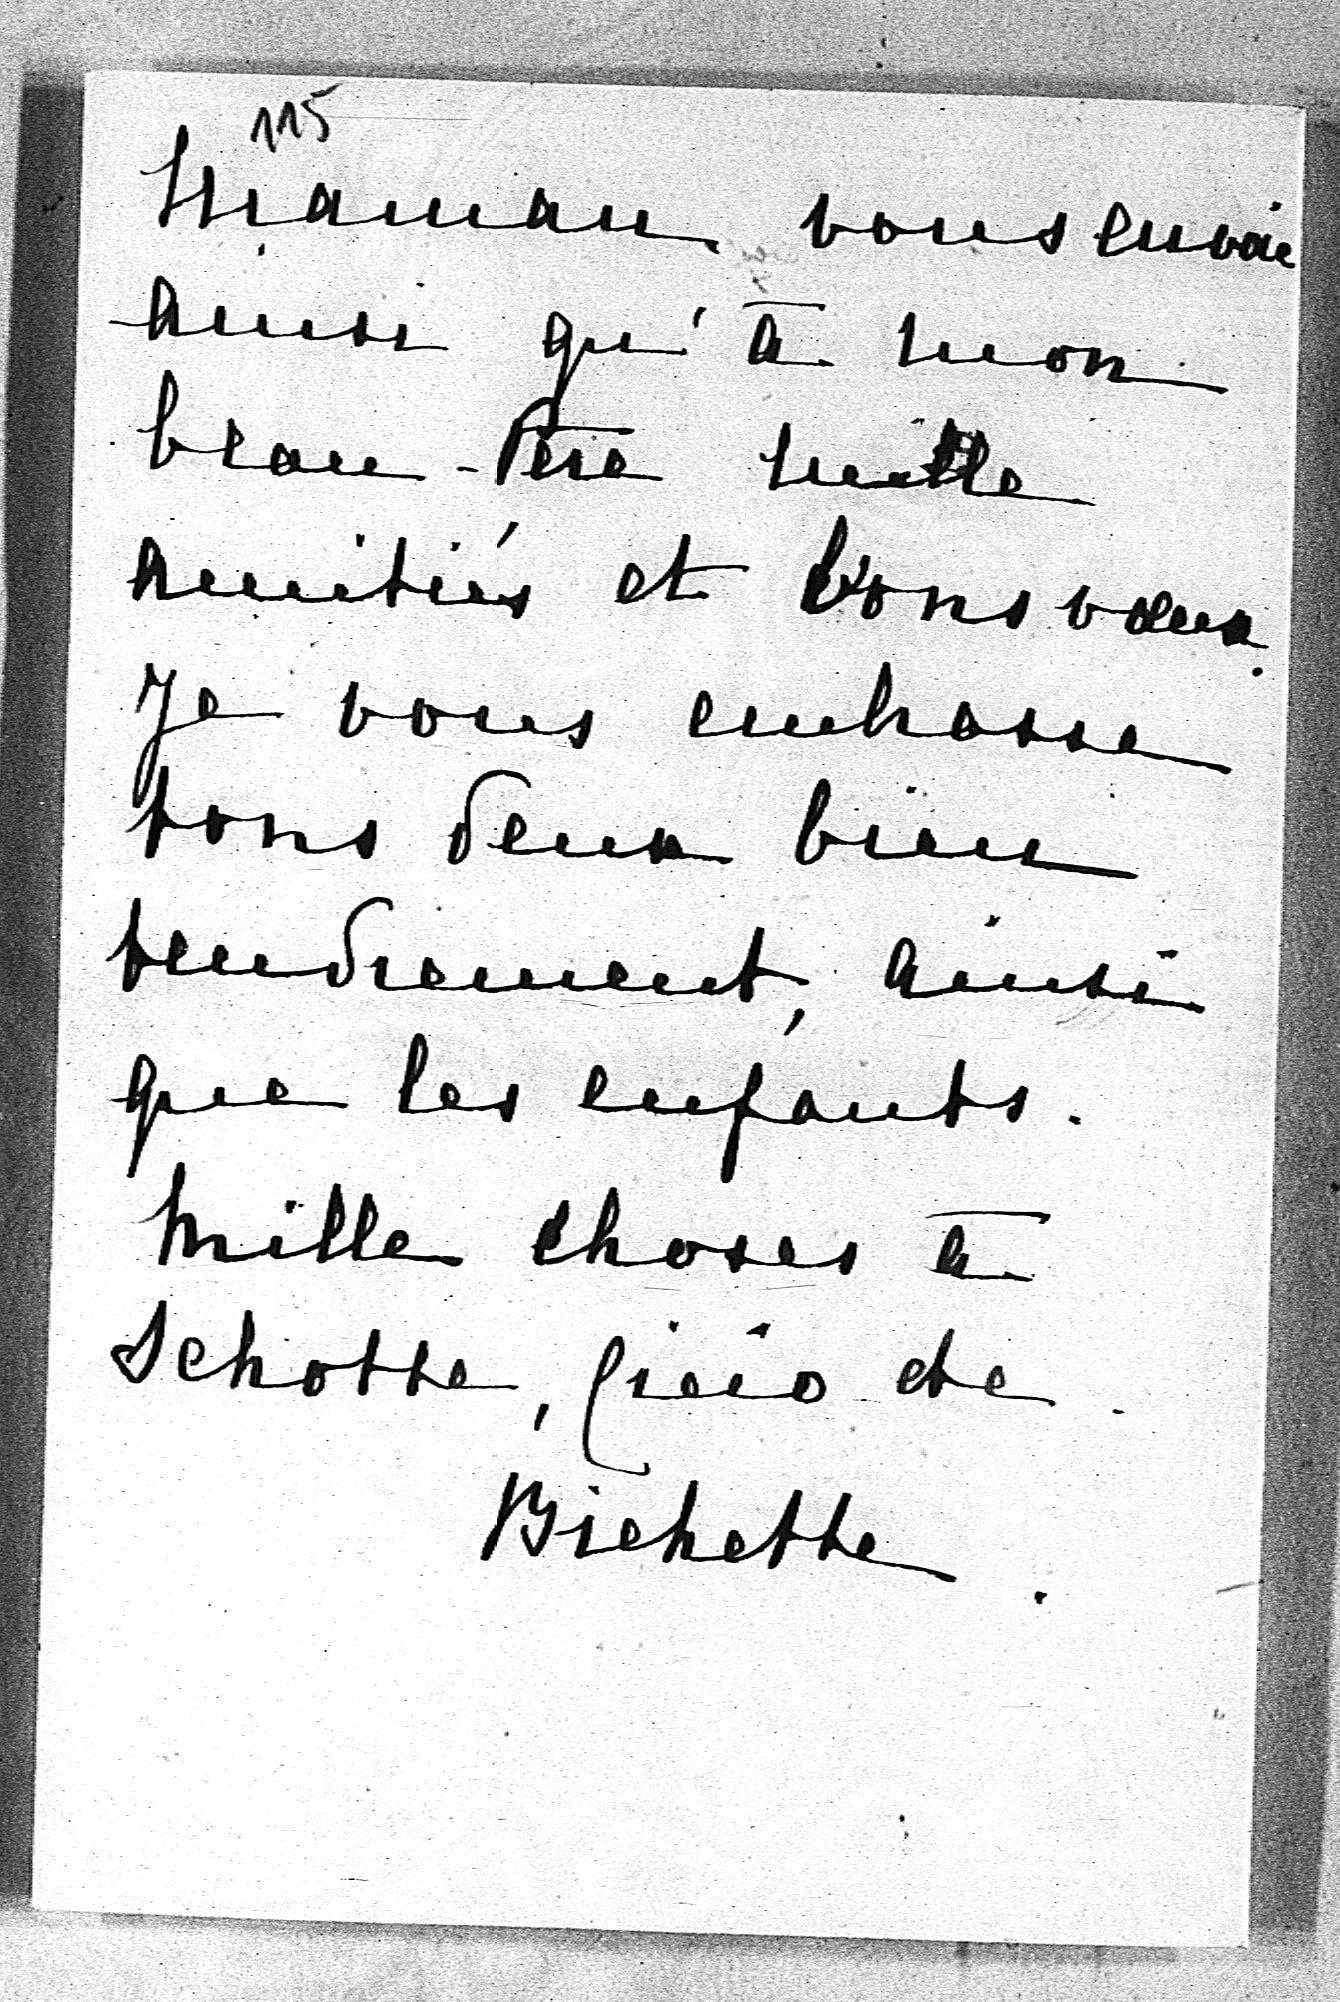 115
Maman vous envoie
ainsi qu'à mon
beau-Père mille
amitiés et bons vœux.
Je vous embrasse
tous deux bien
tendrement, ainsi
que les enfants.
Mille choses à
Schotte, etc.
Bichette.